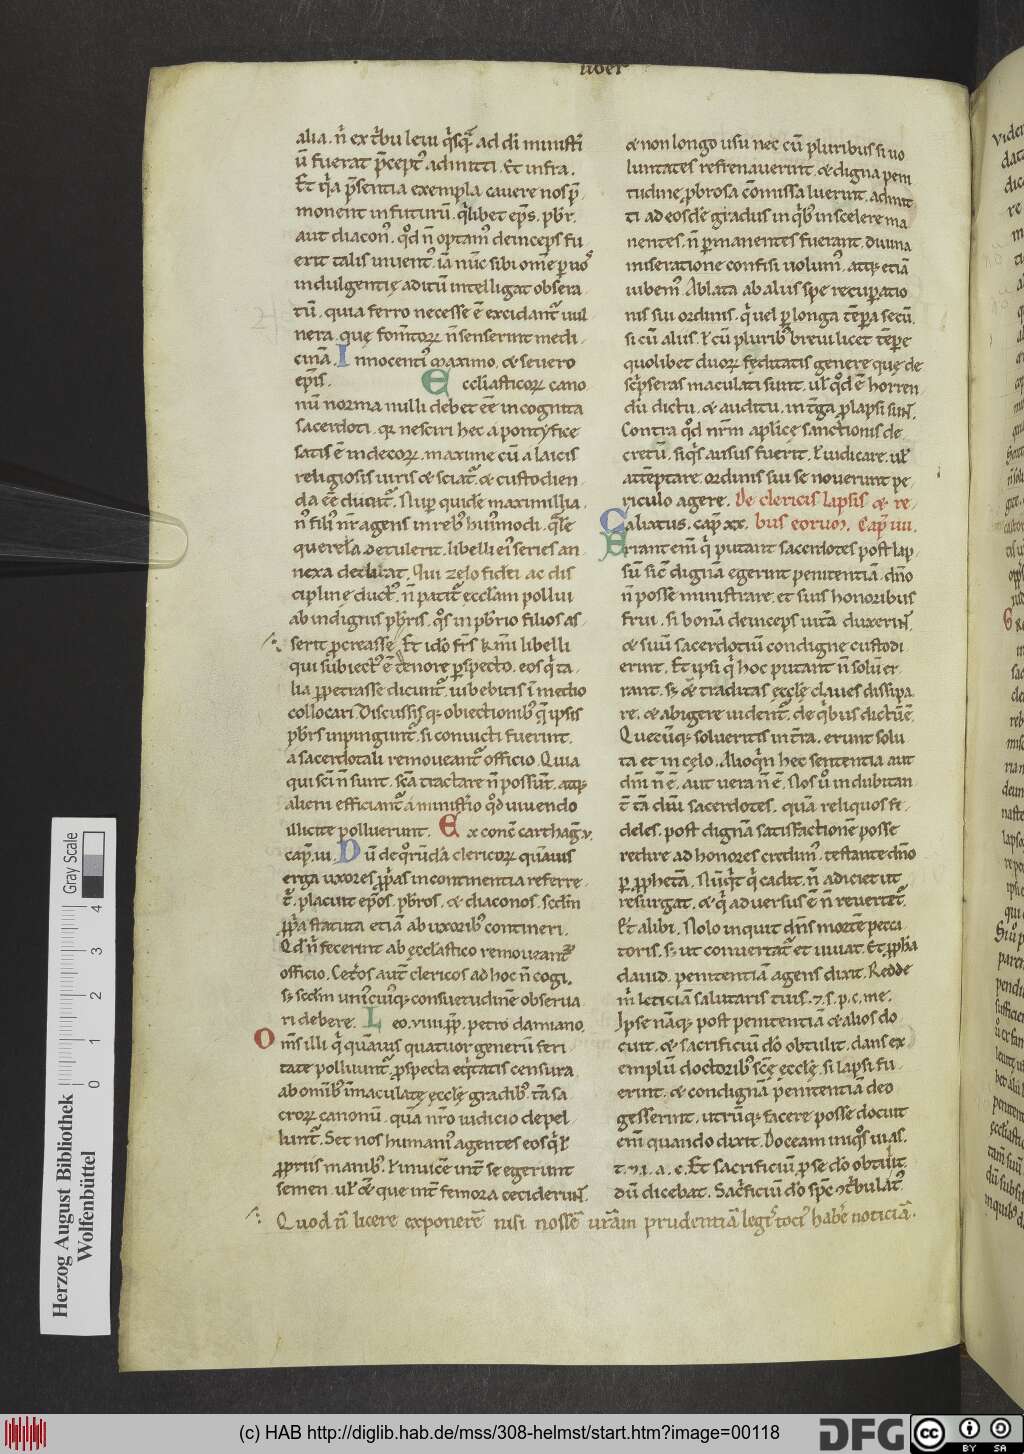 liber
alia. n̄ ex t̓bu leui q̓sq̃ ad dī ministi
ū fuerat p̄cept᷒ admitti. Et infra.
Et q̓a p̄sentia exempla cauere nos p̄
monent in futurū. q̓libet ep̄s. pb̄r.
aut diacon᷒. qd̓ n̄ optam᷒ deinceps fu
erit talis inuent᷒. iā nūc sibi om̄e p uo᷒
indulgentię aditū intelligat obsera
tū. quia ferro necesse ē excidant᷒ uul
nera. quę fom̄torꝝ n̄ senserint medi
cinā. Innocenti᷒ maximo. & seuero
ep̄is. Eccl̄iasticorꝝ cano
nū norma nulli debet eē incognita
sacerdoti. qr nesciri hec a pontyfice
satis ē indecorꝝ. maxime cū a laicis
religiosis uiris & sciat᷒. & custodien
da eē ducat᷒. Nup quidē maximillia
n᷒ fili᷒ nr̄ agens in reb᷒ hui᷒modi. q̄le
querela detulerit. libelli ei᷒ series an
nexa declarat. Qui zelo fidei ac dis
ciplinę duct᷒. n̄ patit᷒ eccl̄am pollui
ab indignis pb̄ris. q̓s in pb̄rio filios as
serit procreasse. Et ido fr̄s kmī libelli
qui subiect᷒ ē tenore pspecto. eos q̓ ta
lia ppetrasse dicunt᷒. iubebitis ī medio
collocari. Discussisq; obiectionib᷒ q̄ ipsis
pb̄ris inpingunt᷒. si conuicti fuerint.
a sacerdotali remoueant᷒ officio. Quia
qui sc̄i n̄ sunt. sc̄a tractare n̄ possūt. atq;
alieni efficiant᷒ a ministrio qd̓ uiuendo
illicite polluerunt. Ex conc̄ carthag̃. v.
cap̄. iii. Dū de q̓rūdā clericorꝝ quāuis
erga uxores pp̓as incontinentia referre
t᷒. placuit ep̄os. pb̄ros. & diaconos. scd̄m
pp̓a statuta etiā ab uxorib᷒ contineri.
Qd̓ n̓ fecerint ab ęccl̄astico remoueant᷒
officio. Ceteros autē clericos ad hoc n̄ cogi.
s; scd̄m uni᷒cui᷒q; consuetudinē obserua
ri debere. Leo. viiii. pp̄. petro damiano.
Om̄s illi q̓ quāuis quatuor generū feri
tate polluunt᷒. pspecta eq̓tatis censura
ab omīb᷒ īmaculatę ęccl̄ę gradib᷒. tā sa
crorꝝ canonū. quā nr̄o iudicio depel
lunt᷒. Set nos humani᷒ agentes eos q̓ ł
propriis manib᷒. ł inuicē int̄ se egerunt
semen. ul᷒ etiā que int̄ femora ceciderūt.
Quod n̄ licere exponerē nisi nossē urām prudentiā legi᷒ toci᷒ hab̄e noticiā.
& non longo usu nec cū pluribus si uo
luntates refrenauerint. & digna peni
tudinę pbrosa cōmissa luerint. admit
ti ad eosdē gradus in q̓b᷒ in scelere ma
nentes. n̄ pmanentes fuerant. diuina
miseratione confisi uolum᷒. atq; etiā
iubem᷒. Ablata ab aliis spe recuperatio
nis sui ordinis. q̓ uel p longa tēpora secū.
si cū aliis. ł cū plurib᷒ breui licet tēpe
quolibet duorꝝ fęditatis genere quę de
scripseras maculati sunt. ul᷒ qd̓ ē horren
dū dictu. & auditu. in t̓ga plapsi sunt.
Contra qd̓ nr̄m aplice sanctionis de
cretū. siq̓s ausus fuerit. ł iudicare. ul᷒
attēptare. ordinis sui se nouerint pe
riculo agere. De clericis lapsis & re
Caliatus. cap̄ xx. bus eorum. Cap̄ iiii.
Errant enī q̓ putant sacerdotes post lap
sū sic̄ dignā egerint penitentiā. dn̄o
n̄ posse ministrare. et suis honoribus
frui. si bonā deinceps uitā duxerint.
& suū sacerdotiū condigne custodi
erint. Et ipsi q̓ hoc putant n̄ solū er
rant. s; & traditas ęccl̄ę claues dissipa
re. & abigere uident᷒. de q̓bus dictū ē.
Quecūq; solueritis in t̄ra. erunt solu
ta et in cęlo. Alioq̓n hec sententia aut
dn̄i n̄ ē. aut uera n̄ ē. Nos ū̓ indubitan
t̄ tā dn̄i sacerdotes. quā reliquos fi
deles. post dignā satisfactionē posse
redire ad honores credim᷒. testante dn̄o
p pphetā. Nūq̓d q̓ cadit. n̄ adiciet ut
resurgat. & q̓ aduersus ē n̄ reuertet᷒.
Et alibi. Nolo inquit dn̄s mortē pecca
toris. s; ut conuertat᷒ et uiuat. Et ppha
dauid. penitentiā agens dixit. Redde
m̓ leticiā salutaris tuis. ⁊. s. p. c. me.
Ipse nāq; post penitentiā & alios do
cuit. & sacrificiū do̓ obtulit. dans ex
emplū doctorib᷒ sc̄ę ęccl̄ę. si lapsi fu
erint. & condignā penitentiā deo
gesserint. utrūq; facere posse docuit
enī quando dixit. Doceam iniq̓s uias.
t. ⁊. i. a. c. Et sacrificiū p se do̓ obtulit.
dū dicebat. Sacrificiū do̓ sp̄c ɔt̓bulat᷒.
Herzog August Bibliothek
Wolfenbüttel
0 1 2 3 4
Gray Scale
(c) HAB http://diglib.hab.de/mss/308-helmst/start.htm?image=00118
DFG
cc BY SA